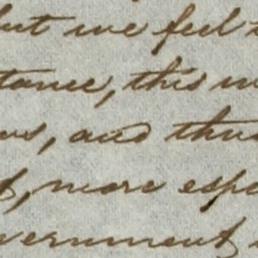 but we feel
tance, this
, and thus
, more espe
vernment